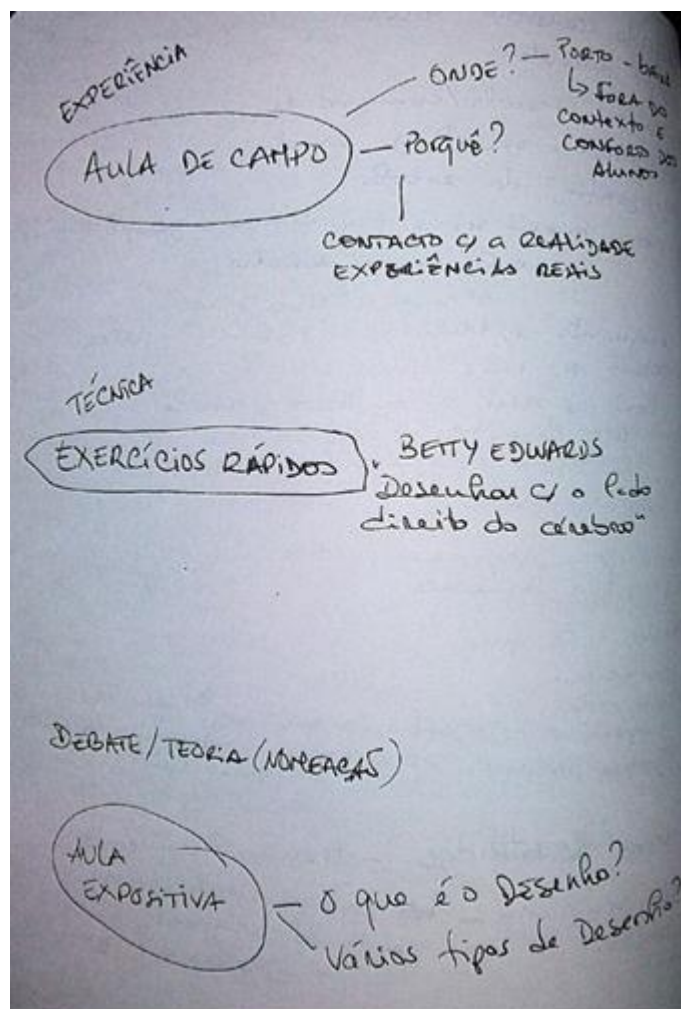 EXPERIÊNCIA
AULA DE CAMPO
ONDE? — PORTO -
FORA DO
CONTEXTO E
CONFORTO DOS
ALUNOS
Porquê?
CONTACTO C/ A REALIDADE
EXPERIÊNCIAS REAIS
TÉCNICA
EXERCÍCIOS RÁPIDOS
BETTY EDWARDS
"Desenhar c/ o lado
direito do cérebro"
DEBATE/TEORIA (NOMEAÇÃO)
AULA
EXPOSITIVA
O que é o Desenho?
Vários tipos de Desenho?